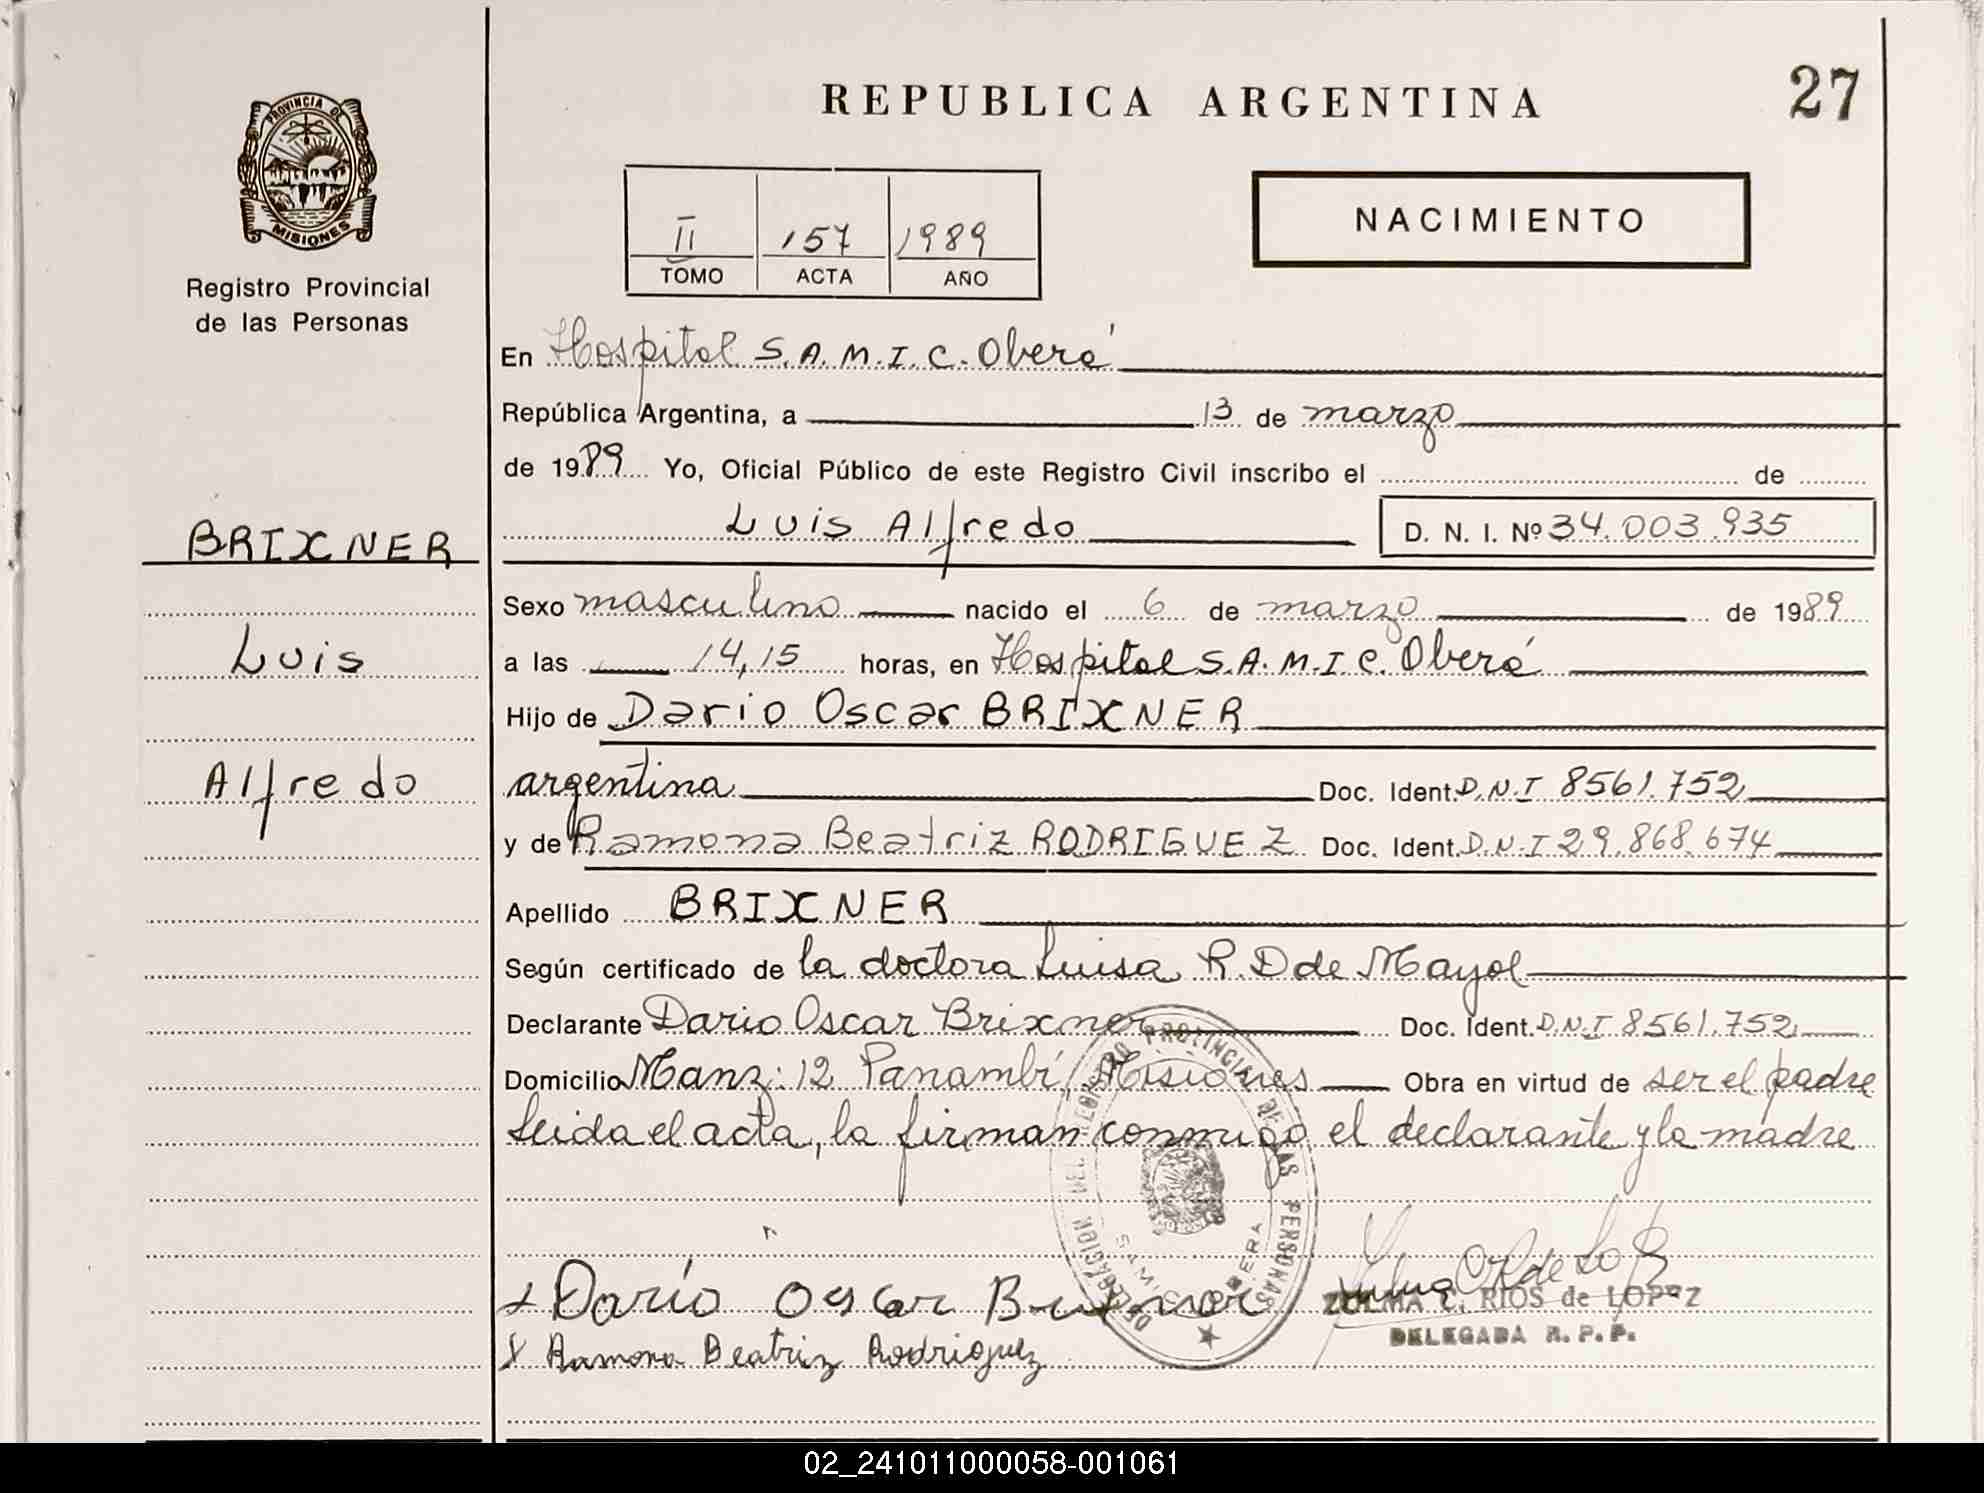 REPUBLICA ARGENTINA
27
PROVINCIA DE
MISIONES
Registro Provincial
de las Personas
II 157 1989
TOMO ACTA AÑO
NACIMIENTO
En Hospital S.A.M.I.C. Oberá
República Argentina, a 13 de marzo
de 1989 Yo, Oficial Público de este Registro Civil inscribo el de
BRIXNER
Luis Alfredo D. N. I. Nº 34.003.935
Sexo masculino nacido el 6 de marzo de 1989
Luis
a las 14,15 horas, en Hospital S.A.M.I.C. Oberá
Hijo de Dario Oscar BRIXNER
Alfredo
argentina Doc. Ident. D.N.I 8561.752
y de Ramona Beatriz RODRIGUEZ Doc. Ident. D.N.I 29.868.674
Apellido BRIXNER
Según certificado de la doctora Luisa R. D de Mayol
Declarante Dario Oscar Brixner Doc. Ident. D.N.I 8561.752
Domicilio Manz: 12 Panambí, Misiones Obra en virtud de ser el padre
Leida el acta, la firman conmigo el declarante y la madre
DELEGACION DEL REGISTRO PROVINCIAL DE LAS PERSONAS
x Darío Oscar
x Ramona Beatriz Rodriguez
ZULMA C. RIOS de LOPEZ
DELEGADA R. P. P.
02_241011000058-001061